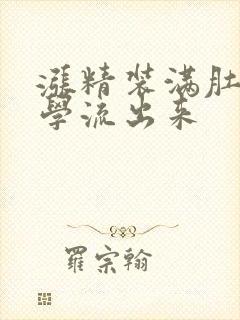 漲精装满肚
學流出来
羅宗翰